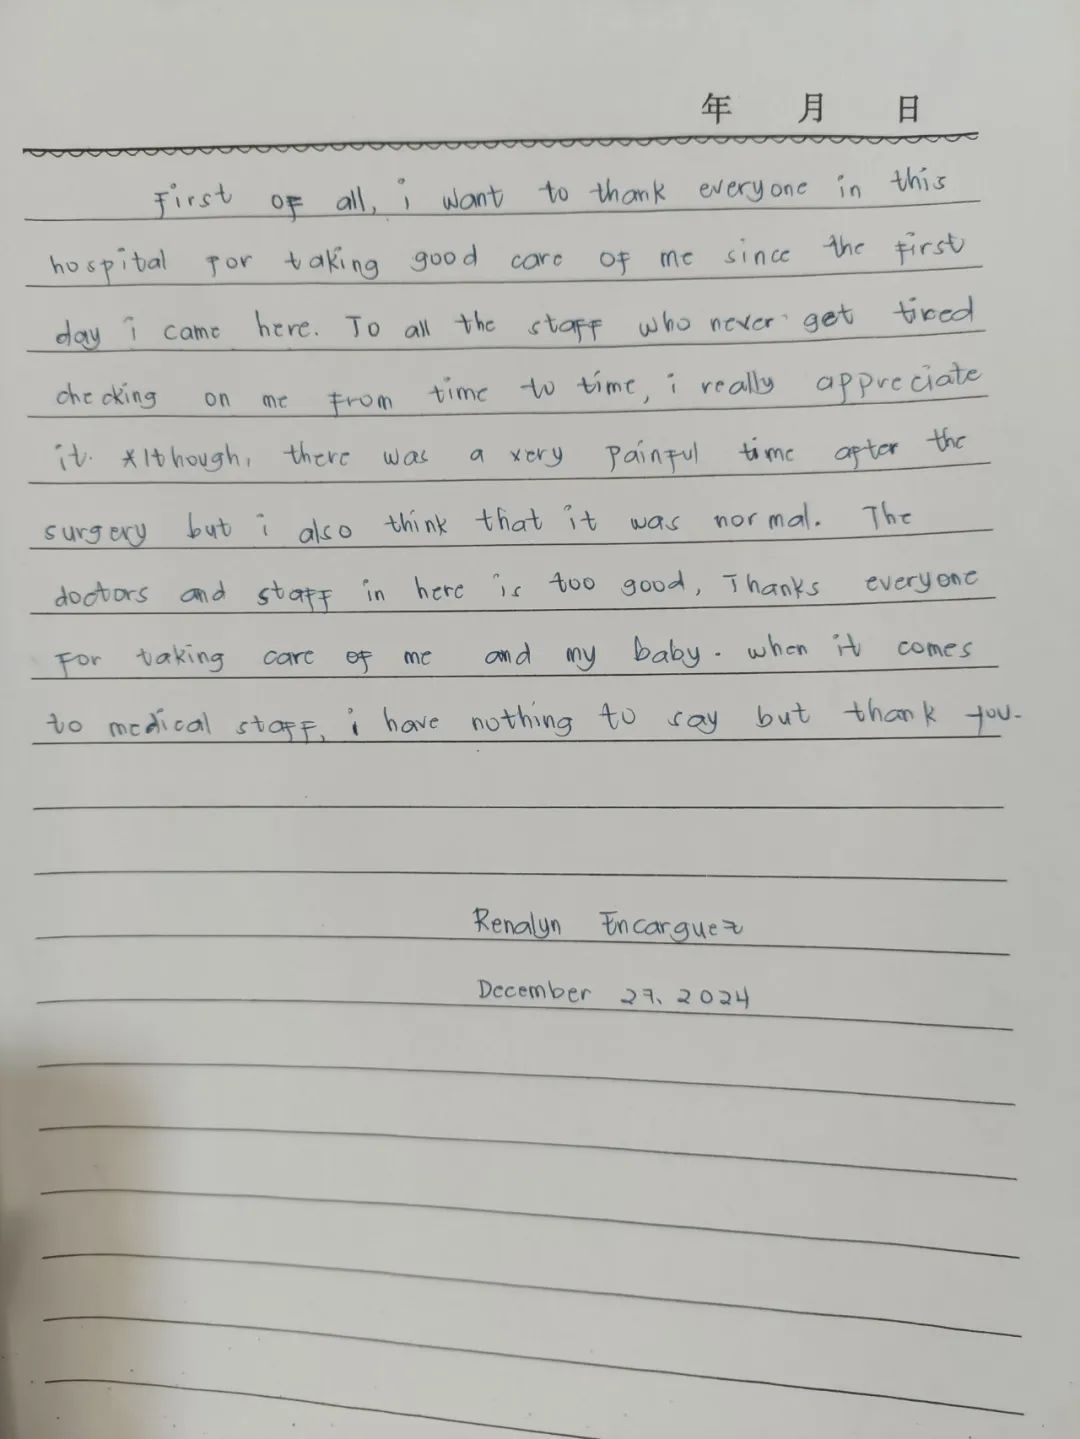 年 月 日
First of all, i want to thank everyone in this
hospital for taking good care of me since the first
day i came here. To all the staff who never get tired
checking on me from time to time, i really appreciate
it. Although, there was a very painful time after the
surgery but i also think that it was normal. The
doctors and staff in here is too good, Thanks everyone
For taking care of me and my baby. when it comes
to medical staff, i have nothing to say but thank you.
Renalyn Encarguez
December 27, 2024